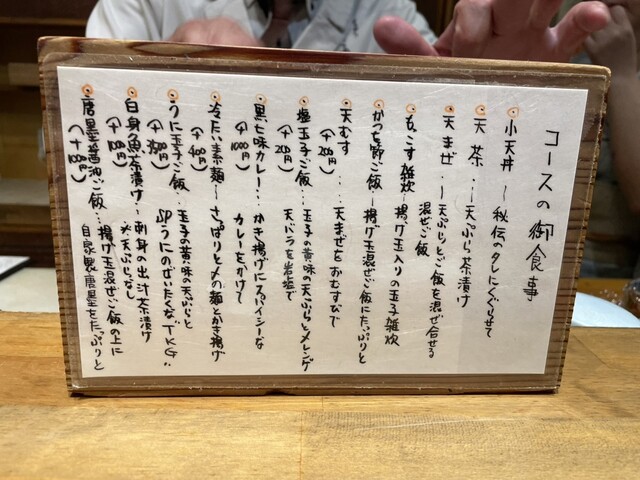 コースの御食事
小天丼 ― 秘伝のタレにくぐらせて
天茶…天ぷら茶漬け
天まぜ…天ぷらとご飯を混ぜ合せる
混ぜご飯
もっこす雑炊―揚げ玉入りの玉子雑炊
かつを節ご飯―揚げ玉混ぜご飯にたっぷりと
天むす…天まぜをおむすびで
(+200円)
塩玉子ご飯…玉子の黄味の天ぷらとメレンゲ
(+200円) 天バラを岩塩で
黒七味カレー…かき揚げにスパイシーな
(+1000円) カレーをかけて
冷たい素麺―さっぱりと〆の麺とかき揚げ
(+400円)
うに玉子ご飯…玉子の黄味の天ぷらと
SPうにのぜいたくなTKG
白身魚茶漬け―刺身の出汁茶漬け
(+100円) ※天ぷらなし
唐墨醤油ご飯…揚げ玉混ぜご飯の上に
自家製唐墨をたっぷりと